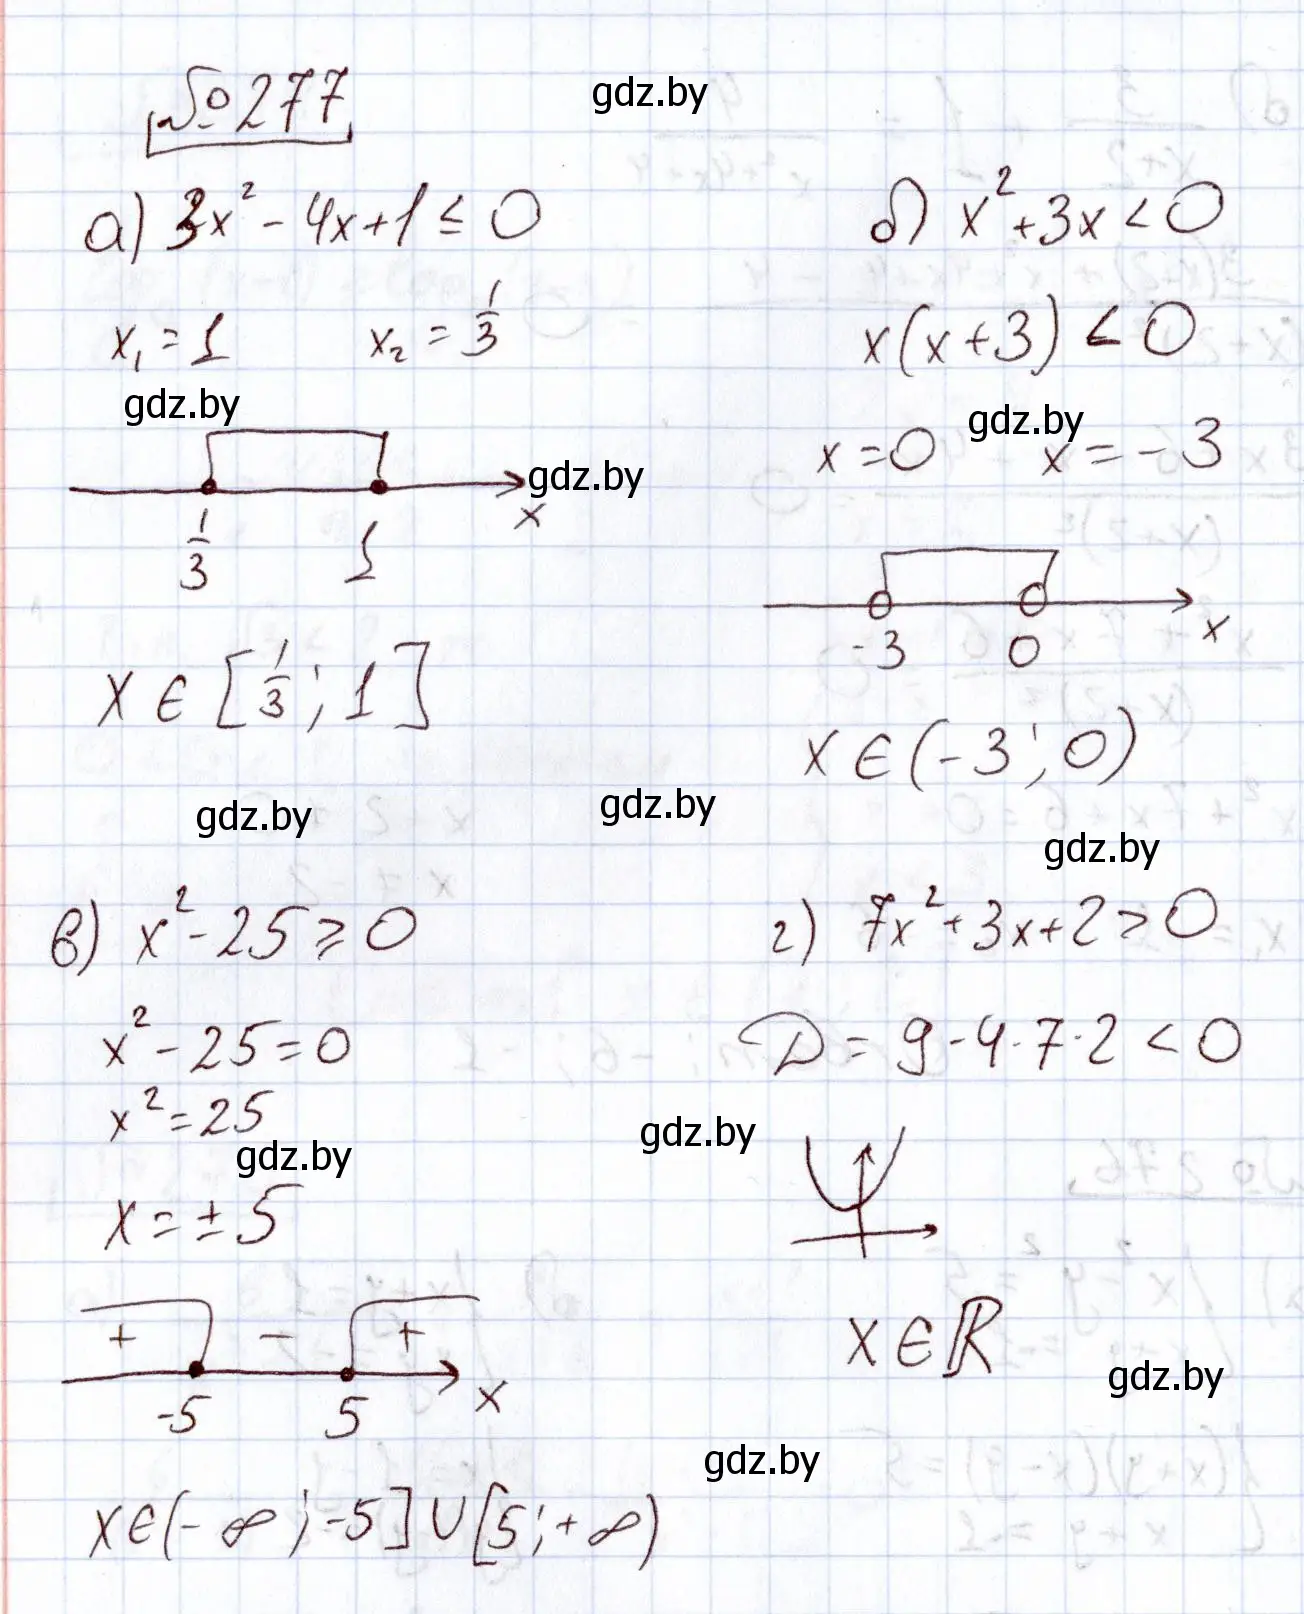 № 277
gdz.by
а) 3x² - 4x + 1 ≤ 0
x₁ = 1 x₂ = 1/3
gdz.by
gdz.by
1/3 1 x
x ∈ [1/3; 1]
gdz.by
б) x² + 3x < 0
x(x + 3) < 0
gdz.by
x = 0 x = -3
-3 0 x
x ∈ (-3; 0)
gdz.by
gdz.by
в) x² - 25 ≥ 0
x² - 25 = 0
x² = 25
gdz.by
x = ± 5
+ - +
-5 5 x
x ∈ (-∞; -5] ∪ [5; +∞)
г) 7x² + 3x + 2 > 0
D = 9 - 4·7·2 < 0
gdz.by
x ∈ ℝ
gdz.by
gdz.by